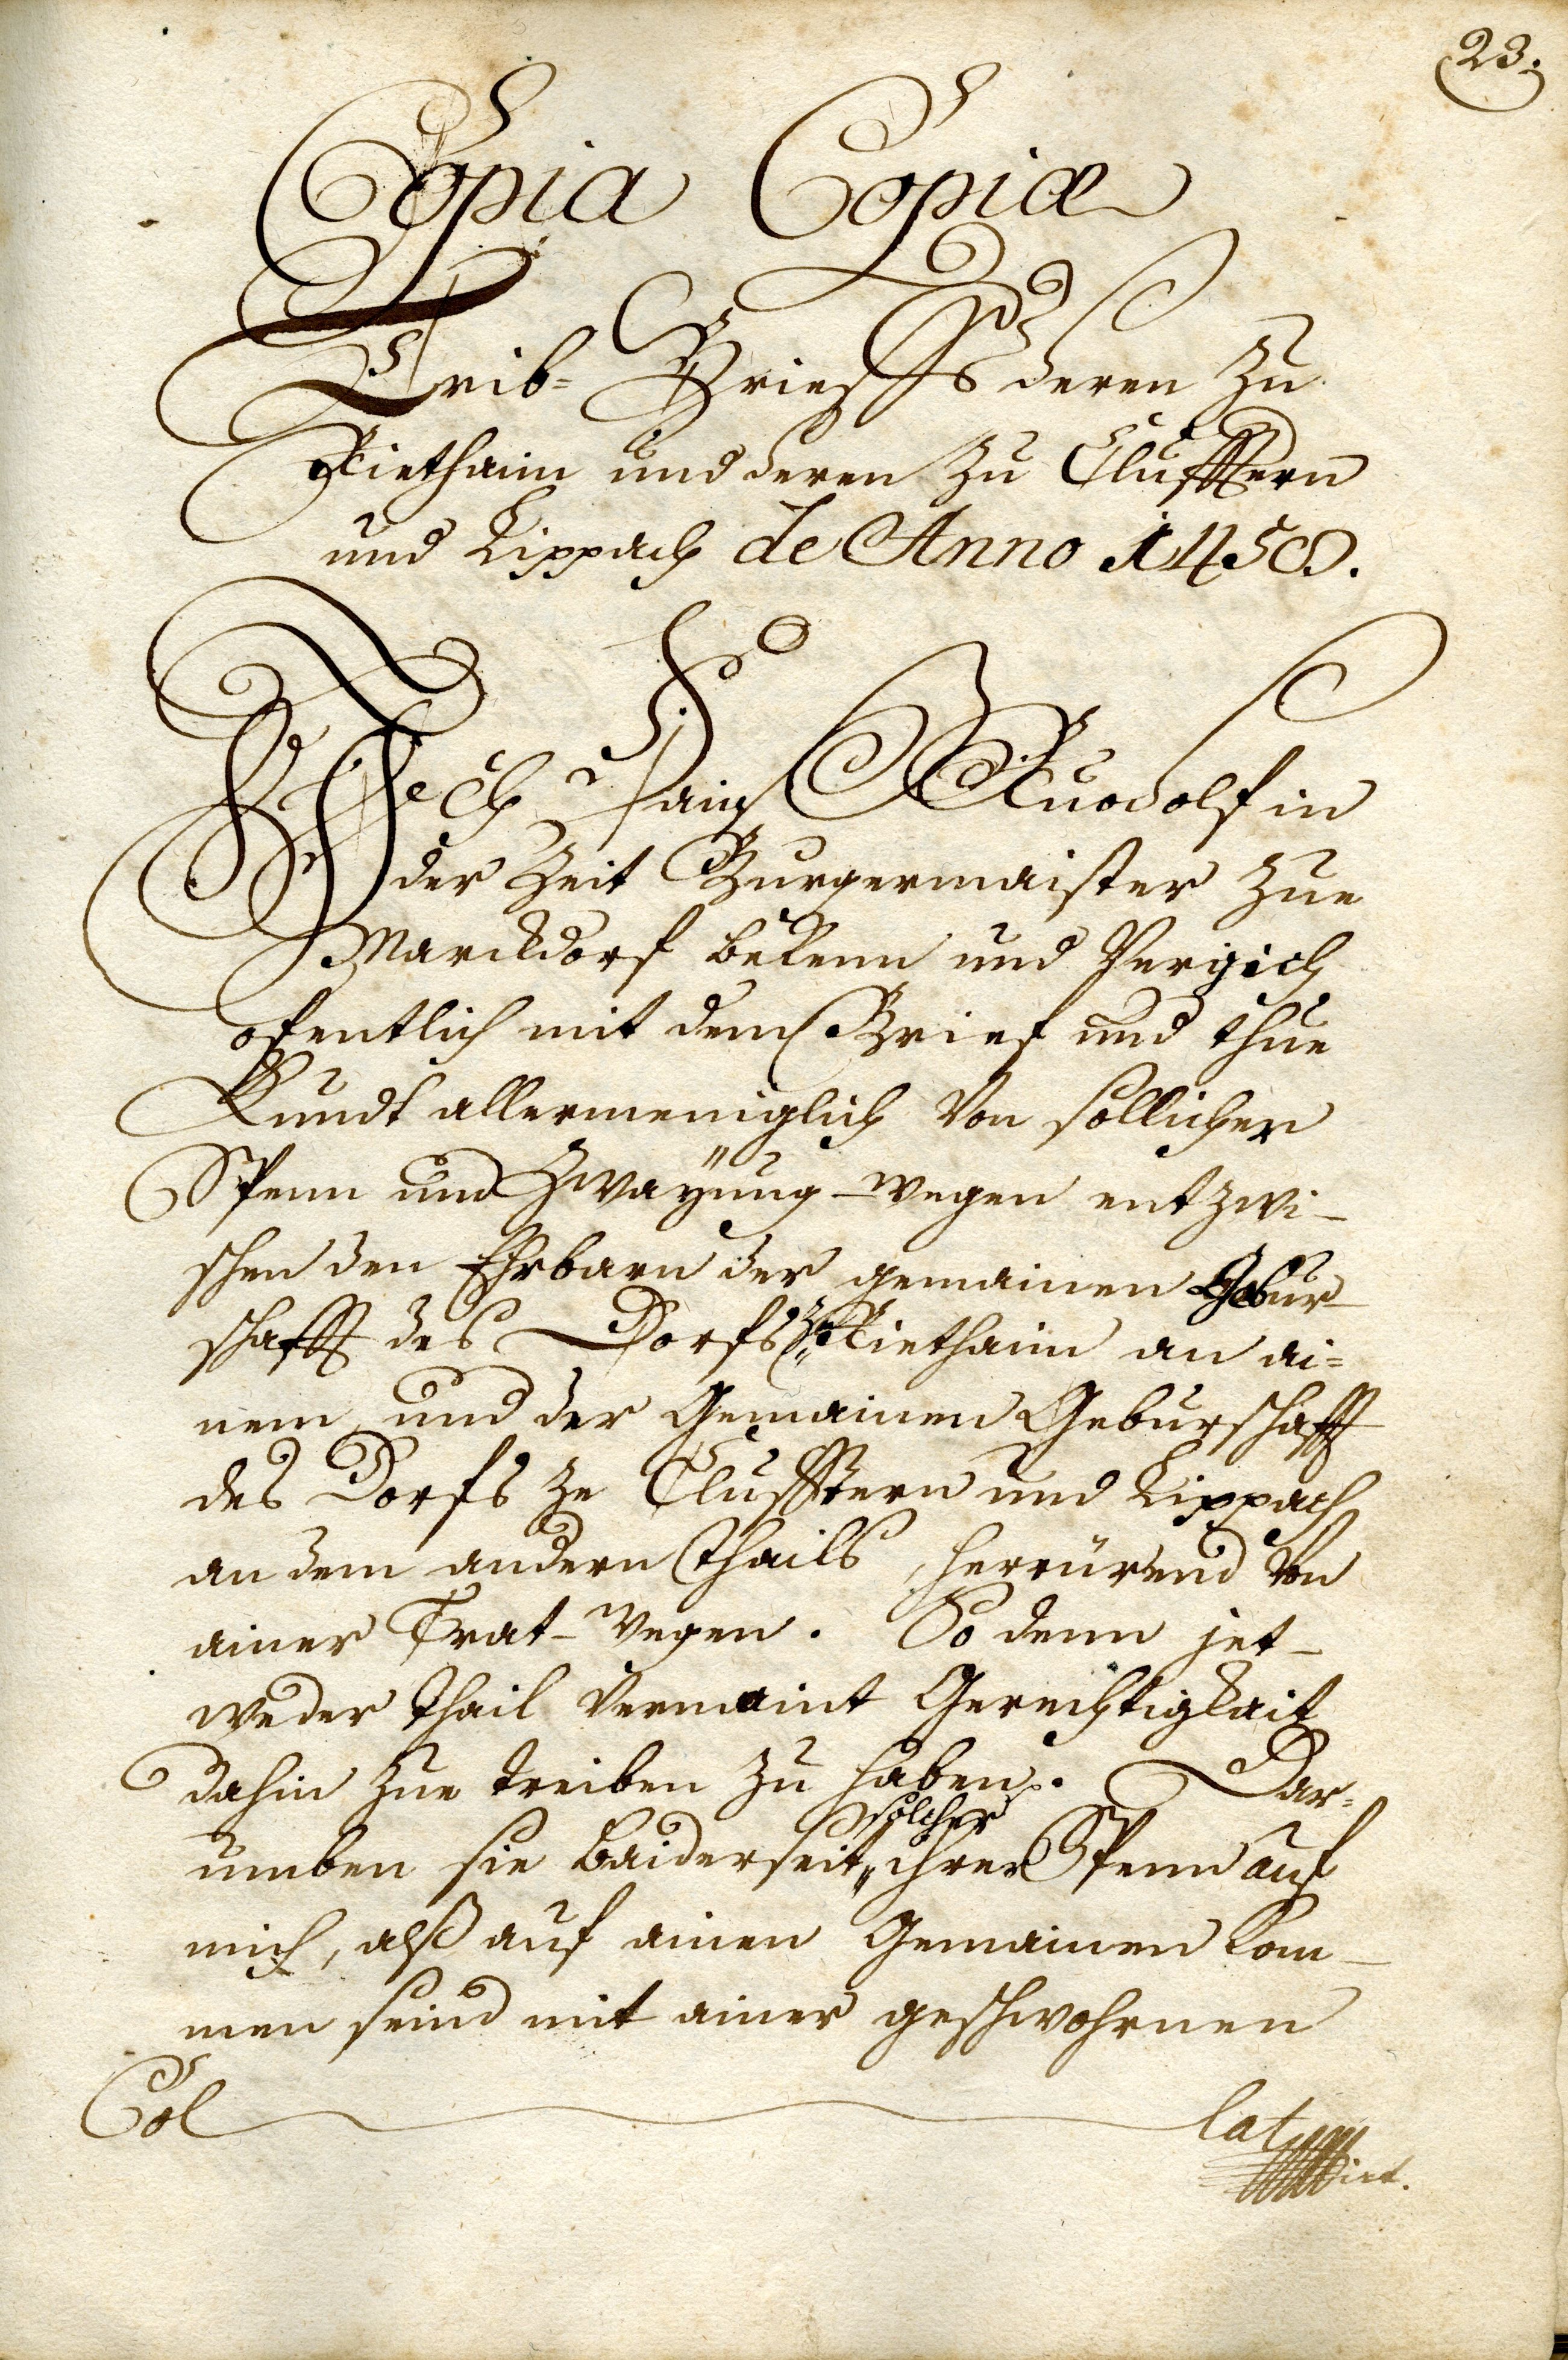 23.
Copia Copiæ
Trib= Brieffs deren zu
Riethaim und deren zu Clufftern
und Lippach de Anno 1450.
Ich Hainß Ruodolf in
der Zeit Burgermaister zue
Marckdorf bekenn und Vergich
ofentlich mit dem Brief und thue
Kundt allermeniglich von sollicher
Spenn und Zwayung-wegen entzwi-
schen den Ehrbarn der gemainen Gebur-
schafft des Dorfs ze Riethaim an ai=
nem und der Gemainen Geburschafft
des Dorfs ze Clufftern und Lippach
an dem andern thails, herrürend von
ainer Trat-wegen. So denn jet-
weder thail vermaint Gerechtigkait
dahin zue treiben zu haben. Dar=
umben sie baiderseit solcher ihrer Spenn auf
mich, alß auf ainen Gemainen kom-
men seind mit ainer geschwohrnen
Col lat
irt.